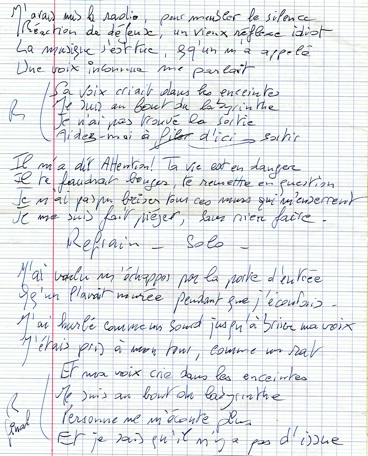 J'avais mis la radio, pour meubler le silence
Réaction de défense, un vieux réflexe idiot
La musique s'est tue, qq'un m'a appelé
Une voix inconnue me parlait
R
Sa voix criait dans les enceintes
Je suis au bout du labyrinthe
Je n'ai pas trouvé la sortie
Aidez-moi à filer d'ici sortir
Il m'a dit Attention! Ta vie est en danger
Il te faudrait bouger, te remettre en question
Je n'ai pas pu briser tous ces murs qui m'enserrent
Je me suis fait piéger, sans rien faire.
Refrain - Solo -
J'ai voulu m'échapper par la porte d'entrée
Qq'un l'avait murée pendant que j'écoutais.
J'ai hurlé comme un sourd jusqu'à briser ma voix
J'étais pris à mon tour, comme un rat
R final
Et ma voix crie dans les enceintes
Je suis au bout du labyrinthe
Personne ne m'écoute plus
Et je sais qu'il n'y a pas d'issue